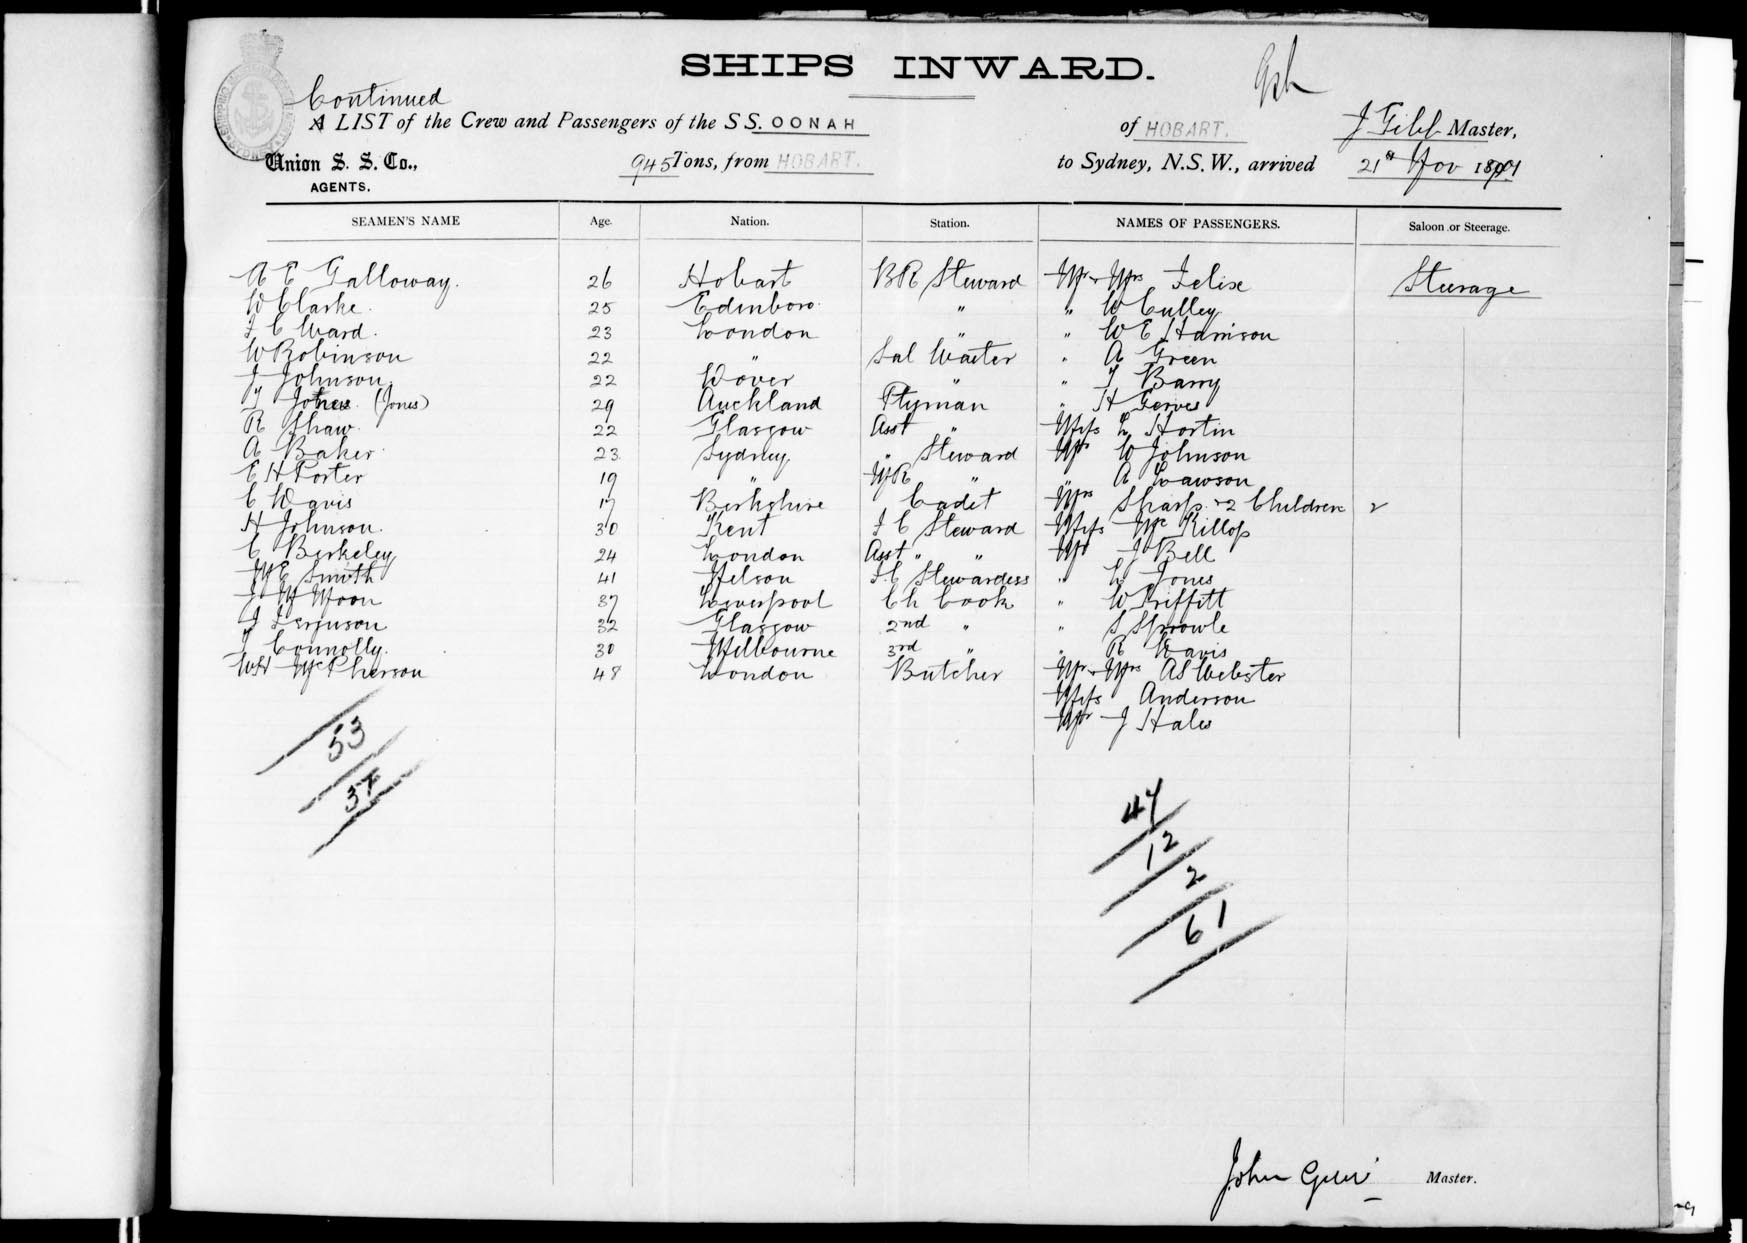 SHIPS INWARD.
Continued
A LIST of the Crew and Passengers of the S S. OONAH of HOBART. J Gibb Master,
Union S. S. Co., 945 Tons, from HOBART. to Sydney, N.S.W., arrived 21st Nov 1891
AGENTS.
SEAMEN'S NAME Age. Nation. Station. NAMES OF PASSENGERS. Saloon or Steerage.
A E Galloway. 26 Hobart BR Steward Mr & Mrs Felix Steerage
W Clarke. 25 Edinboro " " W Culley
F C Ward. 23 London " " W E Harrison
W Robinson 22 " Sal Waiter " A Green
J Johnson. 22 Dover " " T Barry
T (Jones) 29 Auckland Ptyman " H
R Shaw. 22 Glasgow Asst " Miss L Hortin
A Baker 23 Sydney " Steward Mr W Johnson
E H Porter 19 " " " A Lawson
C Davis 17 Berkshire Cadet Mrs Sharp & 2 Children 2
H Johnson. 30 Kent F C Steward Miss McKillop
C Berkeley 24 London Asst " " Mr J Bell
M E Smith 41 Nelson F.C Stewardess " L Jones
J H Moon 37 Liverpool Ch Cook " W Griffitt
J Ferguson 32 Glasgow 2nd " " S Sprowle
T Connolly. 30 Melbourne 3rd " " R Davis
WH McPherson 48 London Butcher Mr & Mrs AS Webster
Miss Anderson
Mr J Hales
53
37
47
12
2
61
John Master.